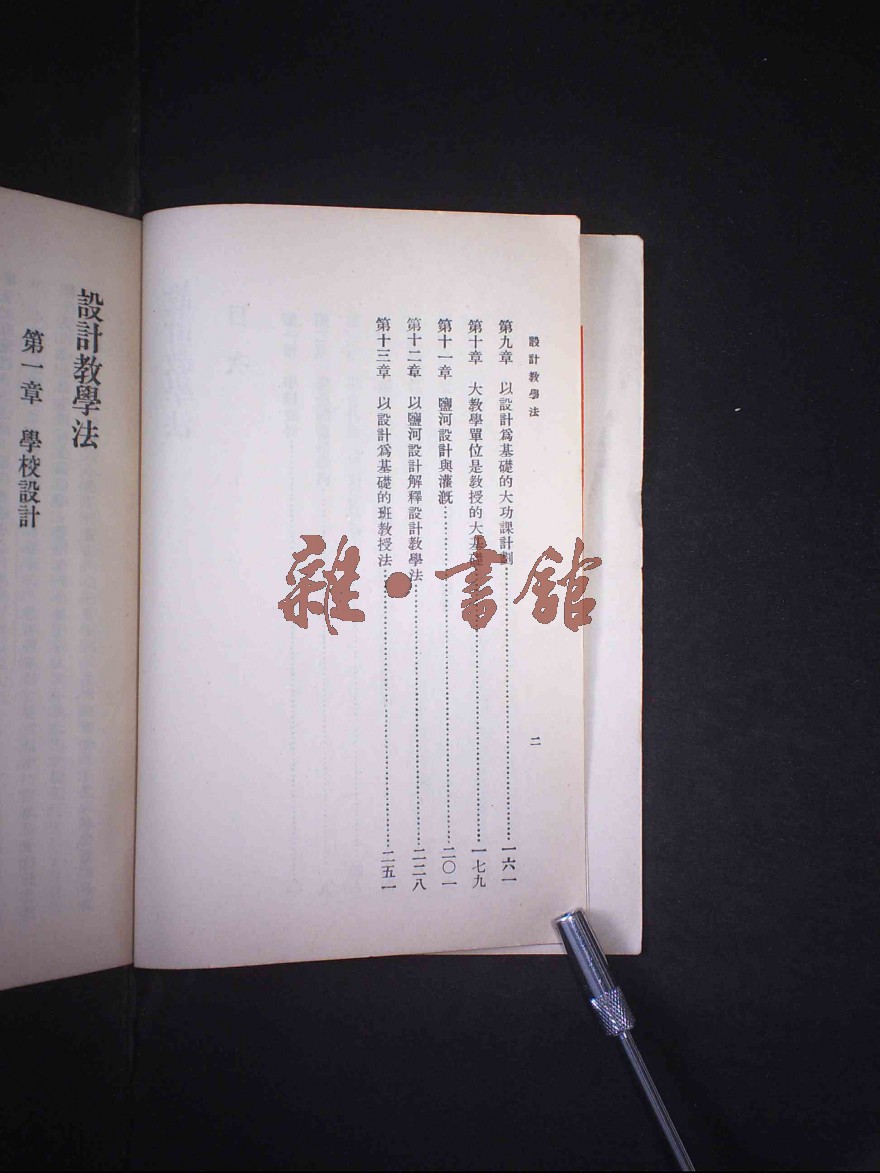 設計教學法
二
第九章　以設計爲基礎的大功課計劃……一六一
第十章　大教學單位是教授的大基礎……一七九
第十一章　鹽河設計與灌漑……二〇一
第十二章　以鹽河設計解釋設計教學法……二二八
第十三章　以設計爲基礎的班教授法……二五一
設計教學法
第一章　學校設計
雜•書館